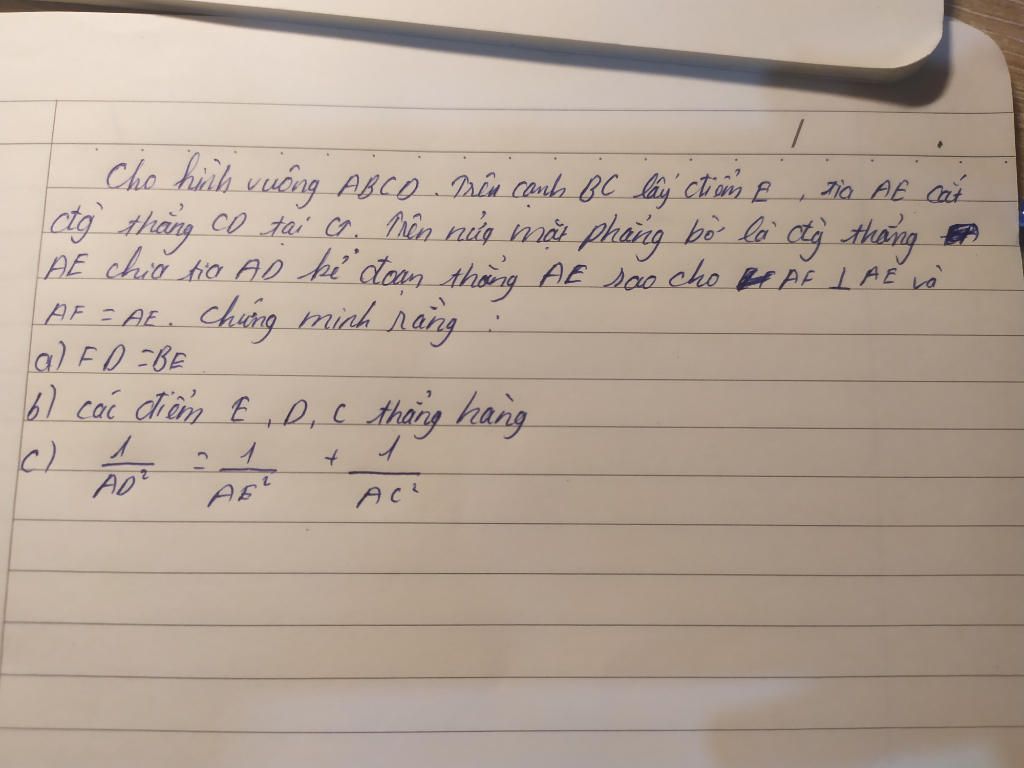 Cho hình vuông ABCD. Trên cạnh BC lấy điểm E, tia AE cắt
đtg thẳng CD tại G. Trên nửa mặt phẳng bờ là đtg thẳng
AE chia tia AD kẻ đoạn thẳng AE sao cho AF ⊥ AE và
AF = AE. Chứng minh rằng :
a) FD = BE
b) các điểm E, D, C thẳng hàng
c) 1/AD² = 1/AE² + 1/AC²